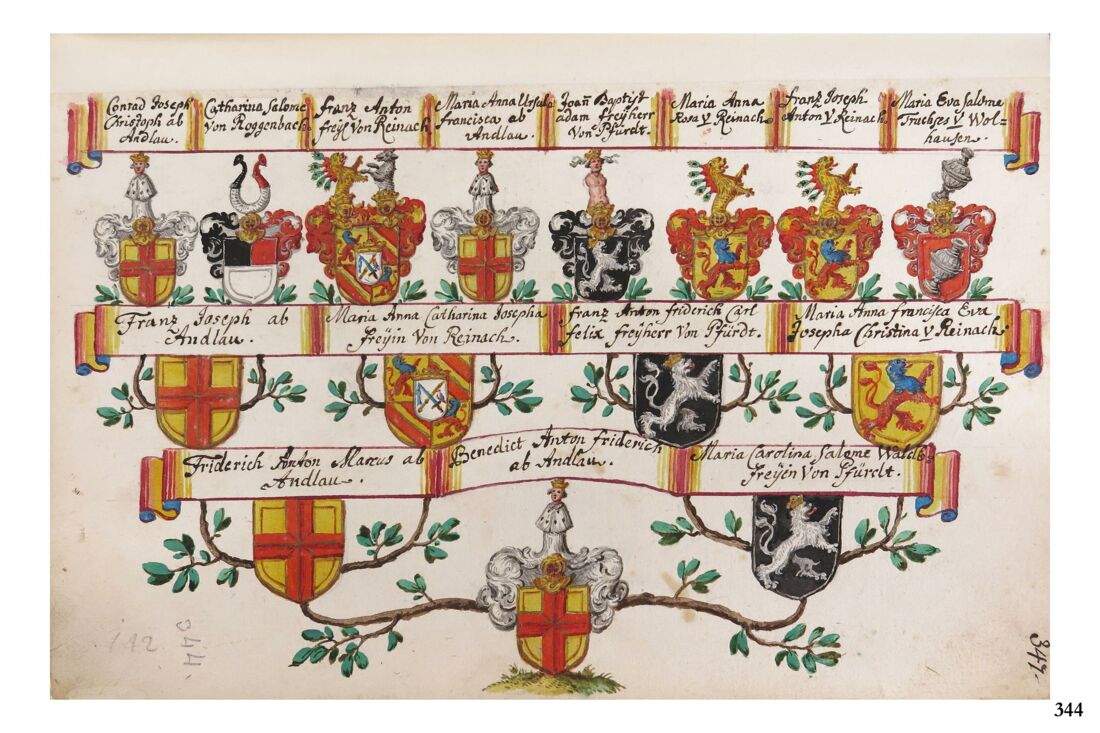 Conrad Joseph
Christoph ab
Andlau.
Catharina Salome
Von Roggenbach
Franz Anton
freÿl Von Reinach
Maria Anna Ursula
Francisca ab
Andlau.
Joan̄ Baptist
adam freÿherr
Von Pfürdt.
Maria Anna
Rosa V Reinach
Franz Joseph
Anton V Reinach
Maria Eva Salome
Truchses V Wol-
hausen.
Franz Joseph ab
Andlau.
Maria Anna Catharina Josepha
freÿin Von Reinach.
Franz Anton friderich Carl
felix freÿherr Von Pfürdt.
Maria Anna Francisca Eva
Josepha Christina V Reinach
Friderich Anton Marcus ab
Andlau.
Benedict Anton friderich
ab Andlau.
Maria Carolina Salome Waldb-
freÿin Von Pfürdt.
142
344
344